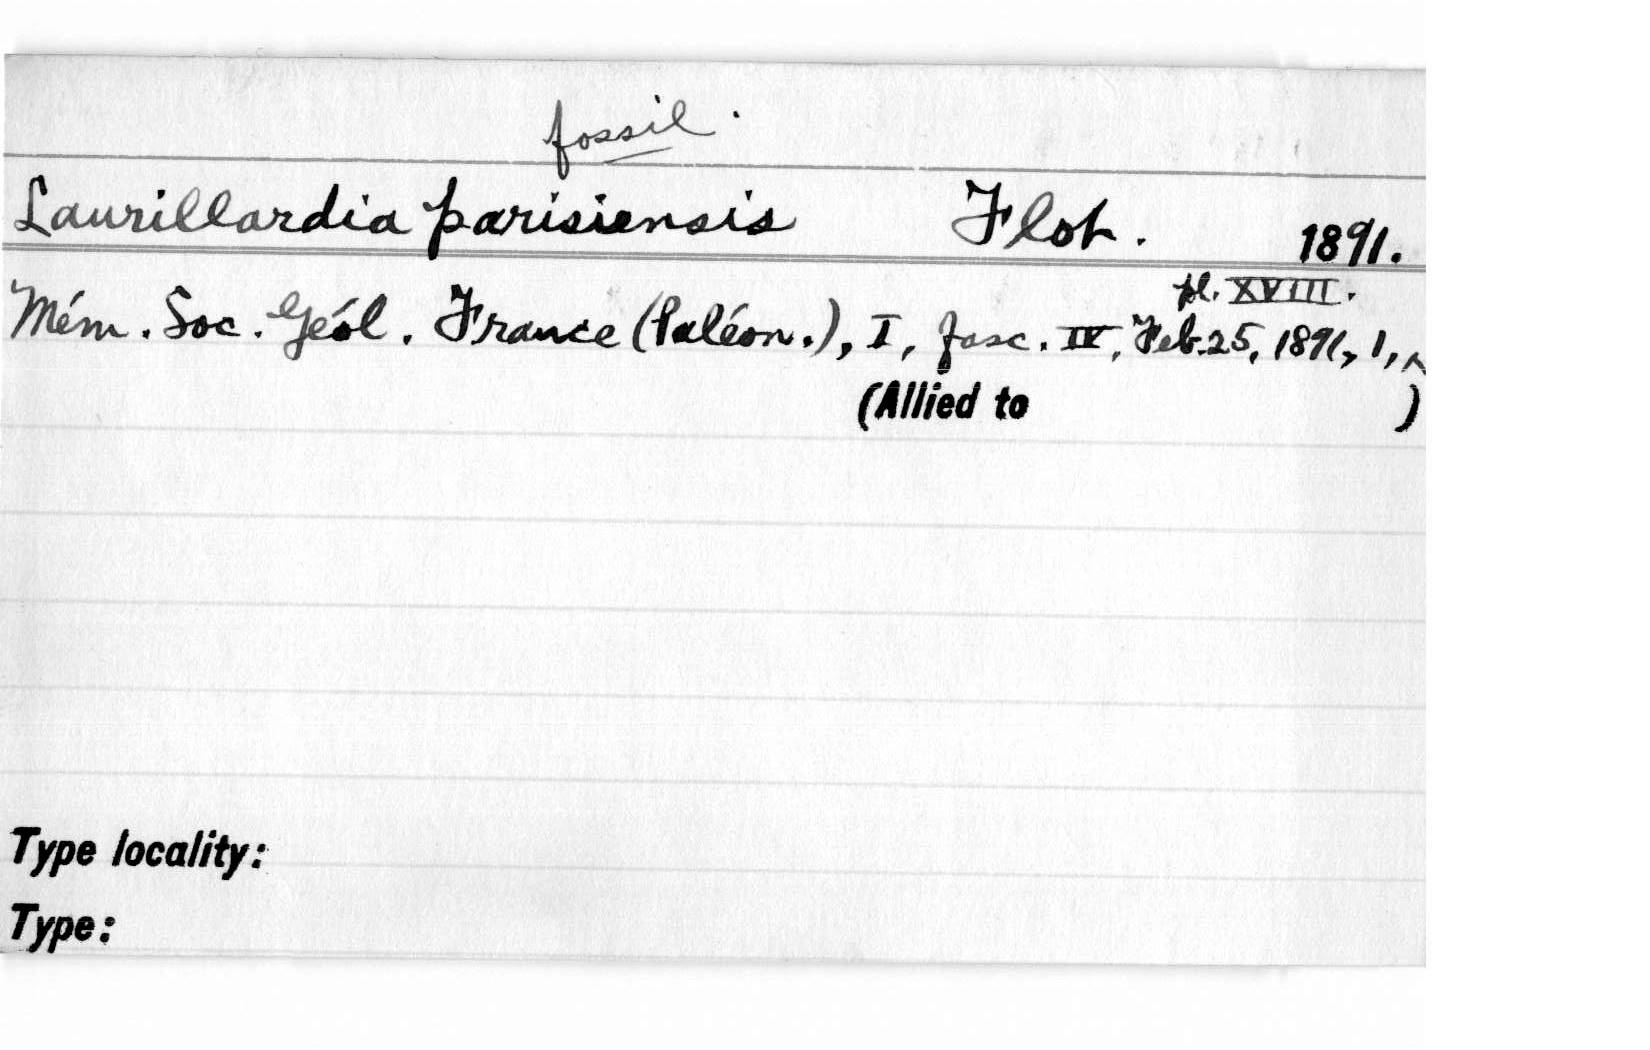 fossil.
Laurillardia parisiensis Flot. 1891.
pl. XVIII.
Mém. Soc. Géol. France (Paléon.), I, fasc. IV, Feb. 25, 1891, 1, ^
(Allied to )
Type locality:
Type: